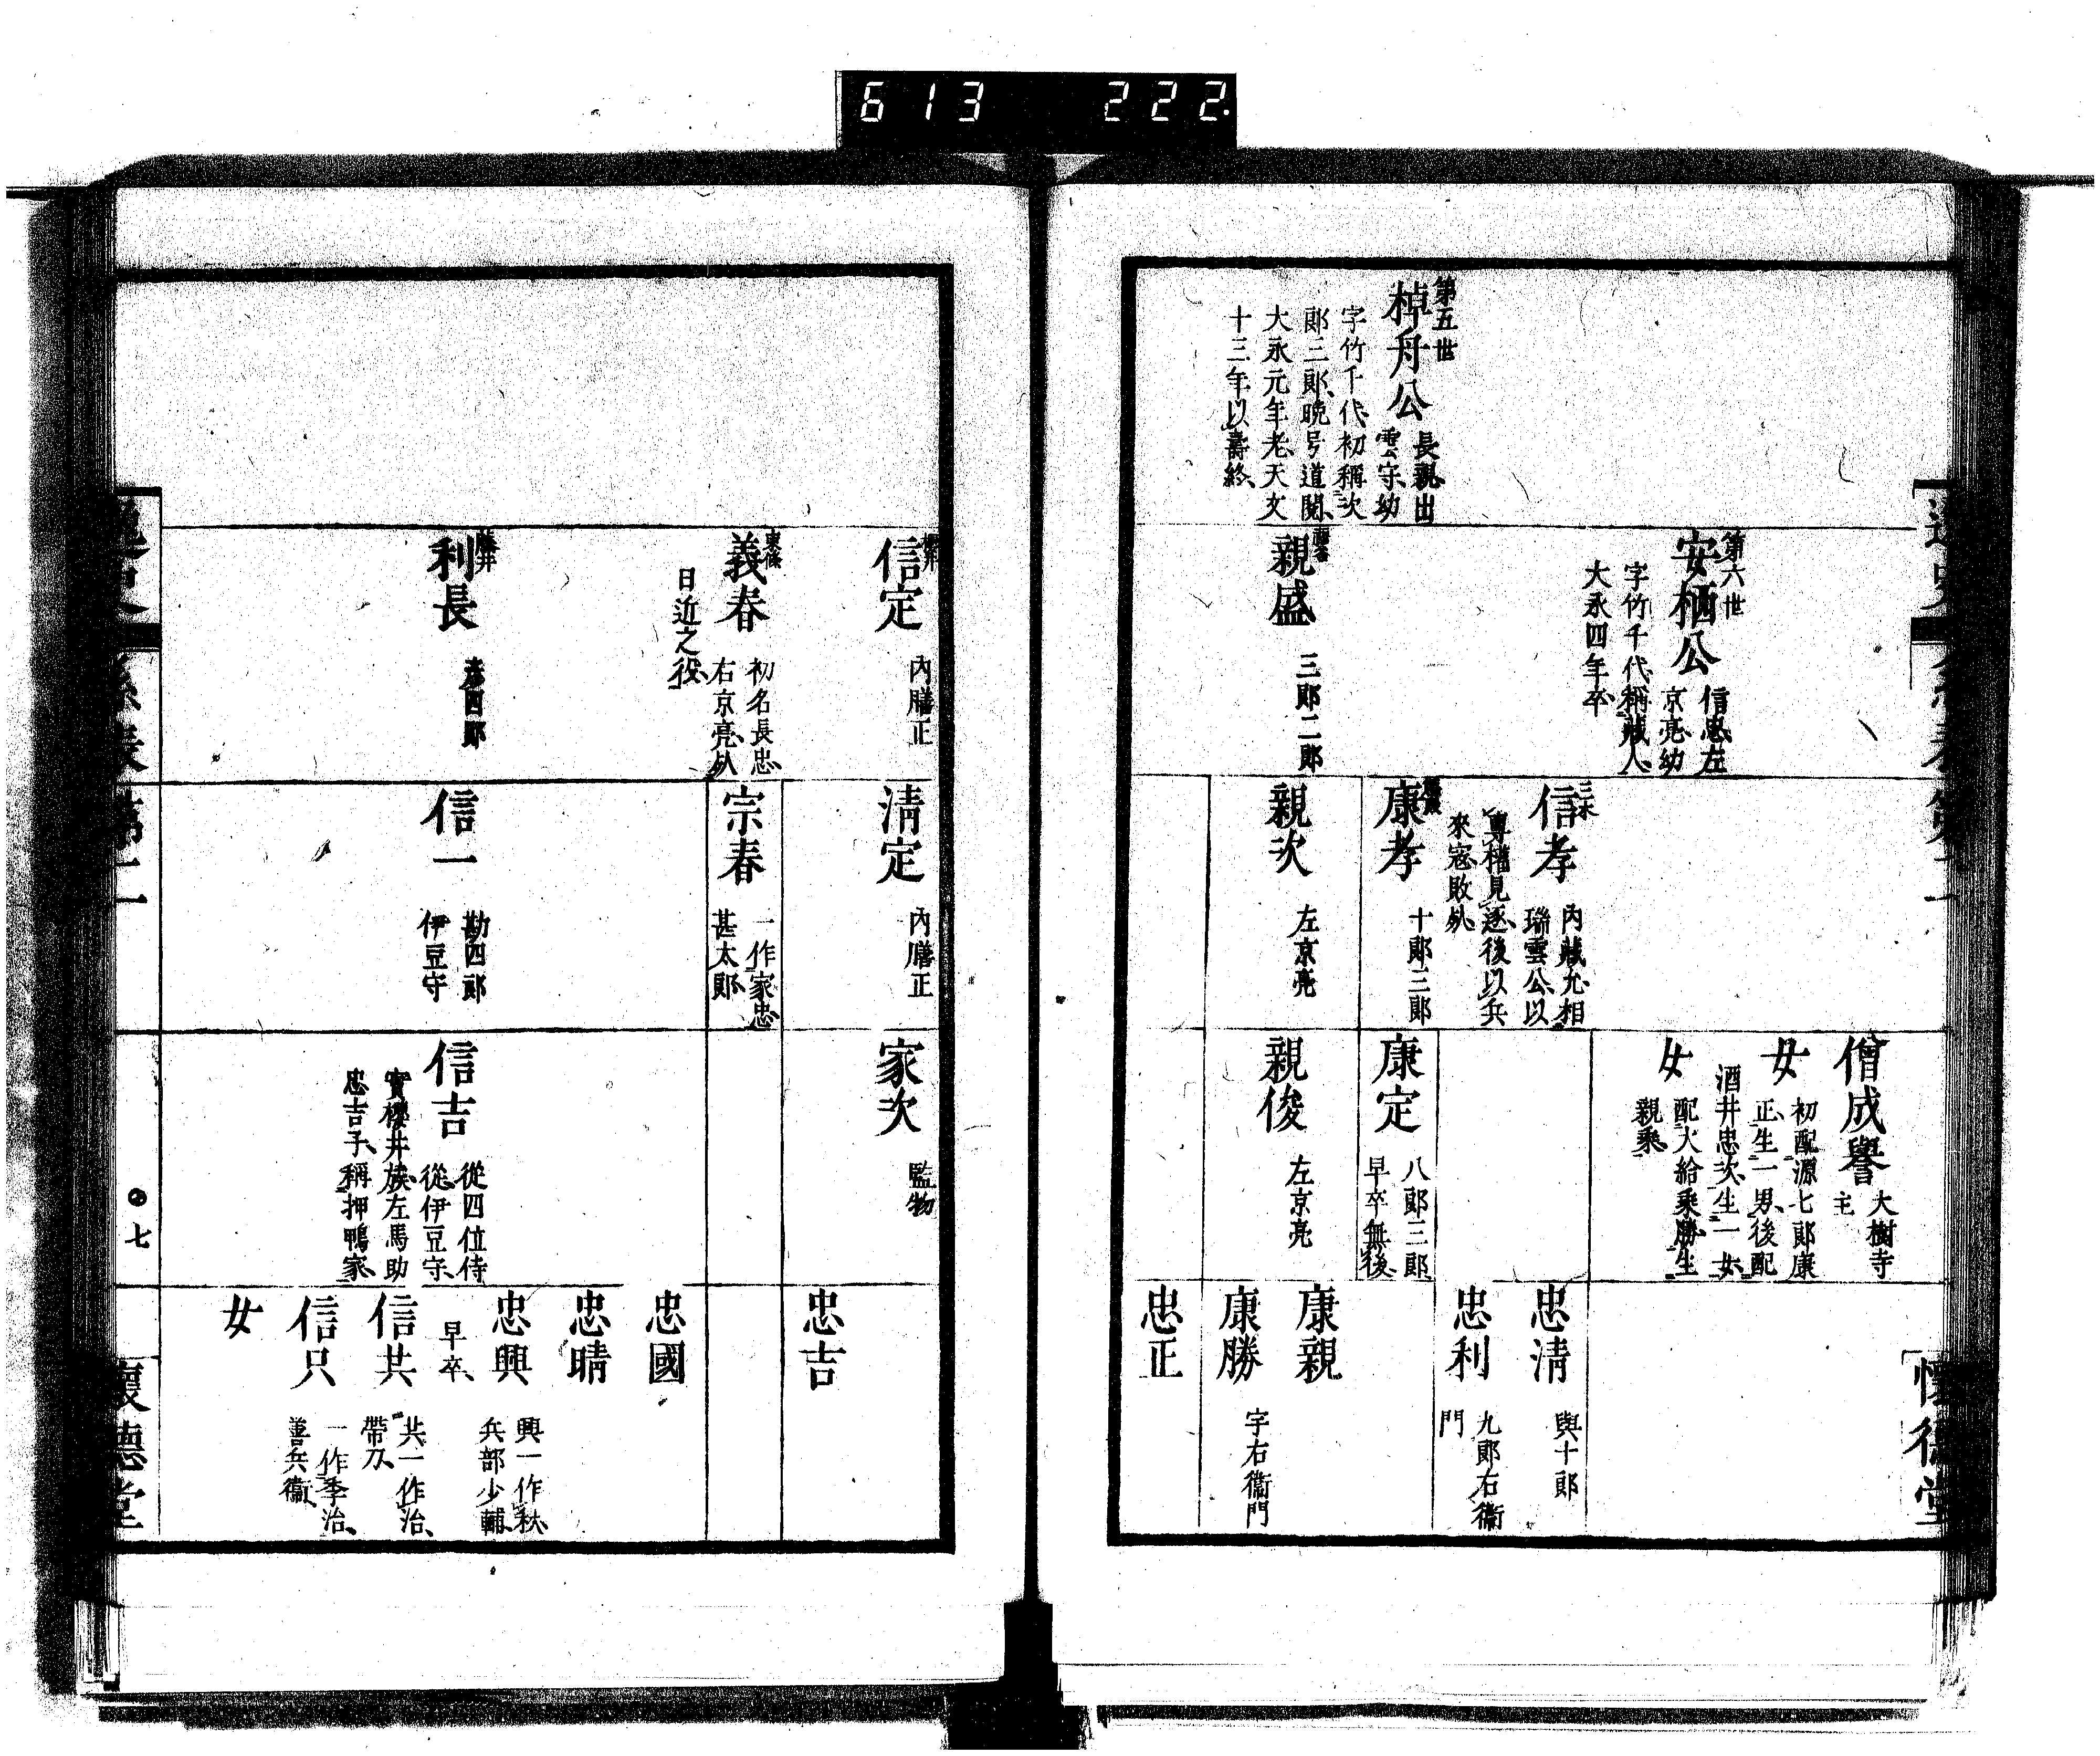 613 222.
第五世
棹舟公
長親、出
雲守、幼
字竹千代、初稱次
郎三郎、晩号道閱、
大永元年老、天文
十三年以壽終、
第六世
安栖公
信忠、左
京亮、幼
字竹千代、稱藏人、
大永四年卒
親盛
三郎二郎
三木
信孝
內藏允、相
瑞雲公、以
專權見逐、後以兵
來寇敗死
康孝
十郎三郎
親次
左京亮
僧成譽
大樹寺
主
女
初配源七郎康
正、生一男、後配
酒井忠次、生一女、
女
配大給乘勝、生
親乘、
康定
八郎三郎
早卒無後
親俊
左京亮
忠淸
與十郎
忠利
九郎右衞
門
康親
康勝
字右衞門
忠正
懷德堂
信定
內膳正
東條
義春
初名長忠、
右京亮、死
日近之役、
藤井
利長
彥四郎
淸定
內膳正
宗春
一作家忠
甚太郎、
信一
勘四郎
伊豆守
家次
監物
信吉
從四位侍
從、伊豆守、
實櫻井族、左馬助
忠吉子、稱押鴨家、
忠吉
忠國
忠晴
忠興
興一作秋、
兵部少輔、
早卒、
信共
共一作治、
帶刀、
信只
一作季治、
善兵衞、
女
系表第二
七
懷德堂